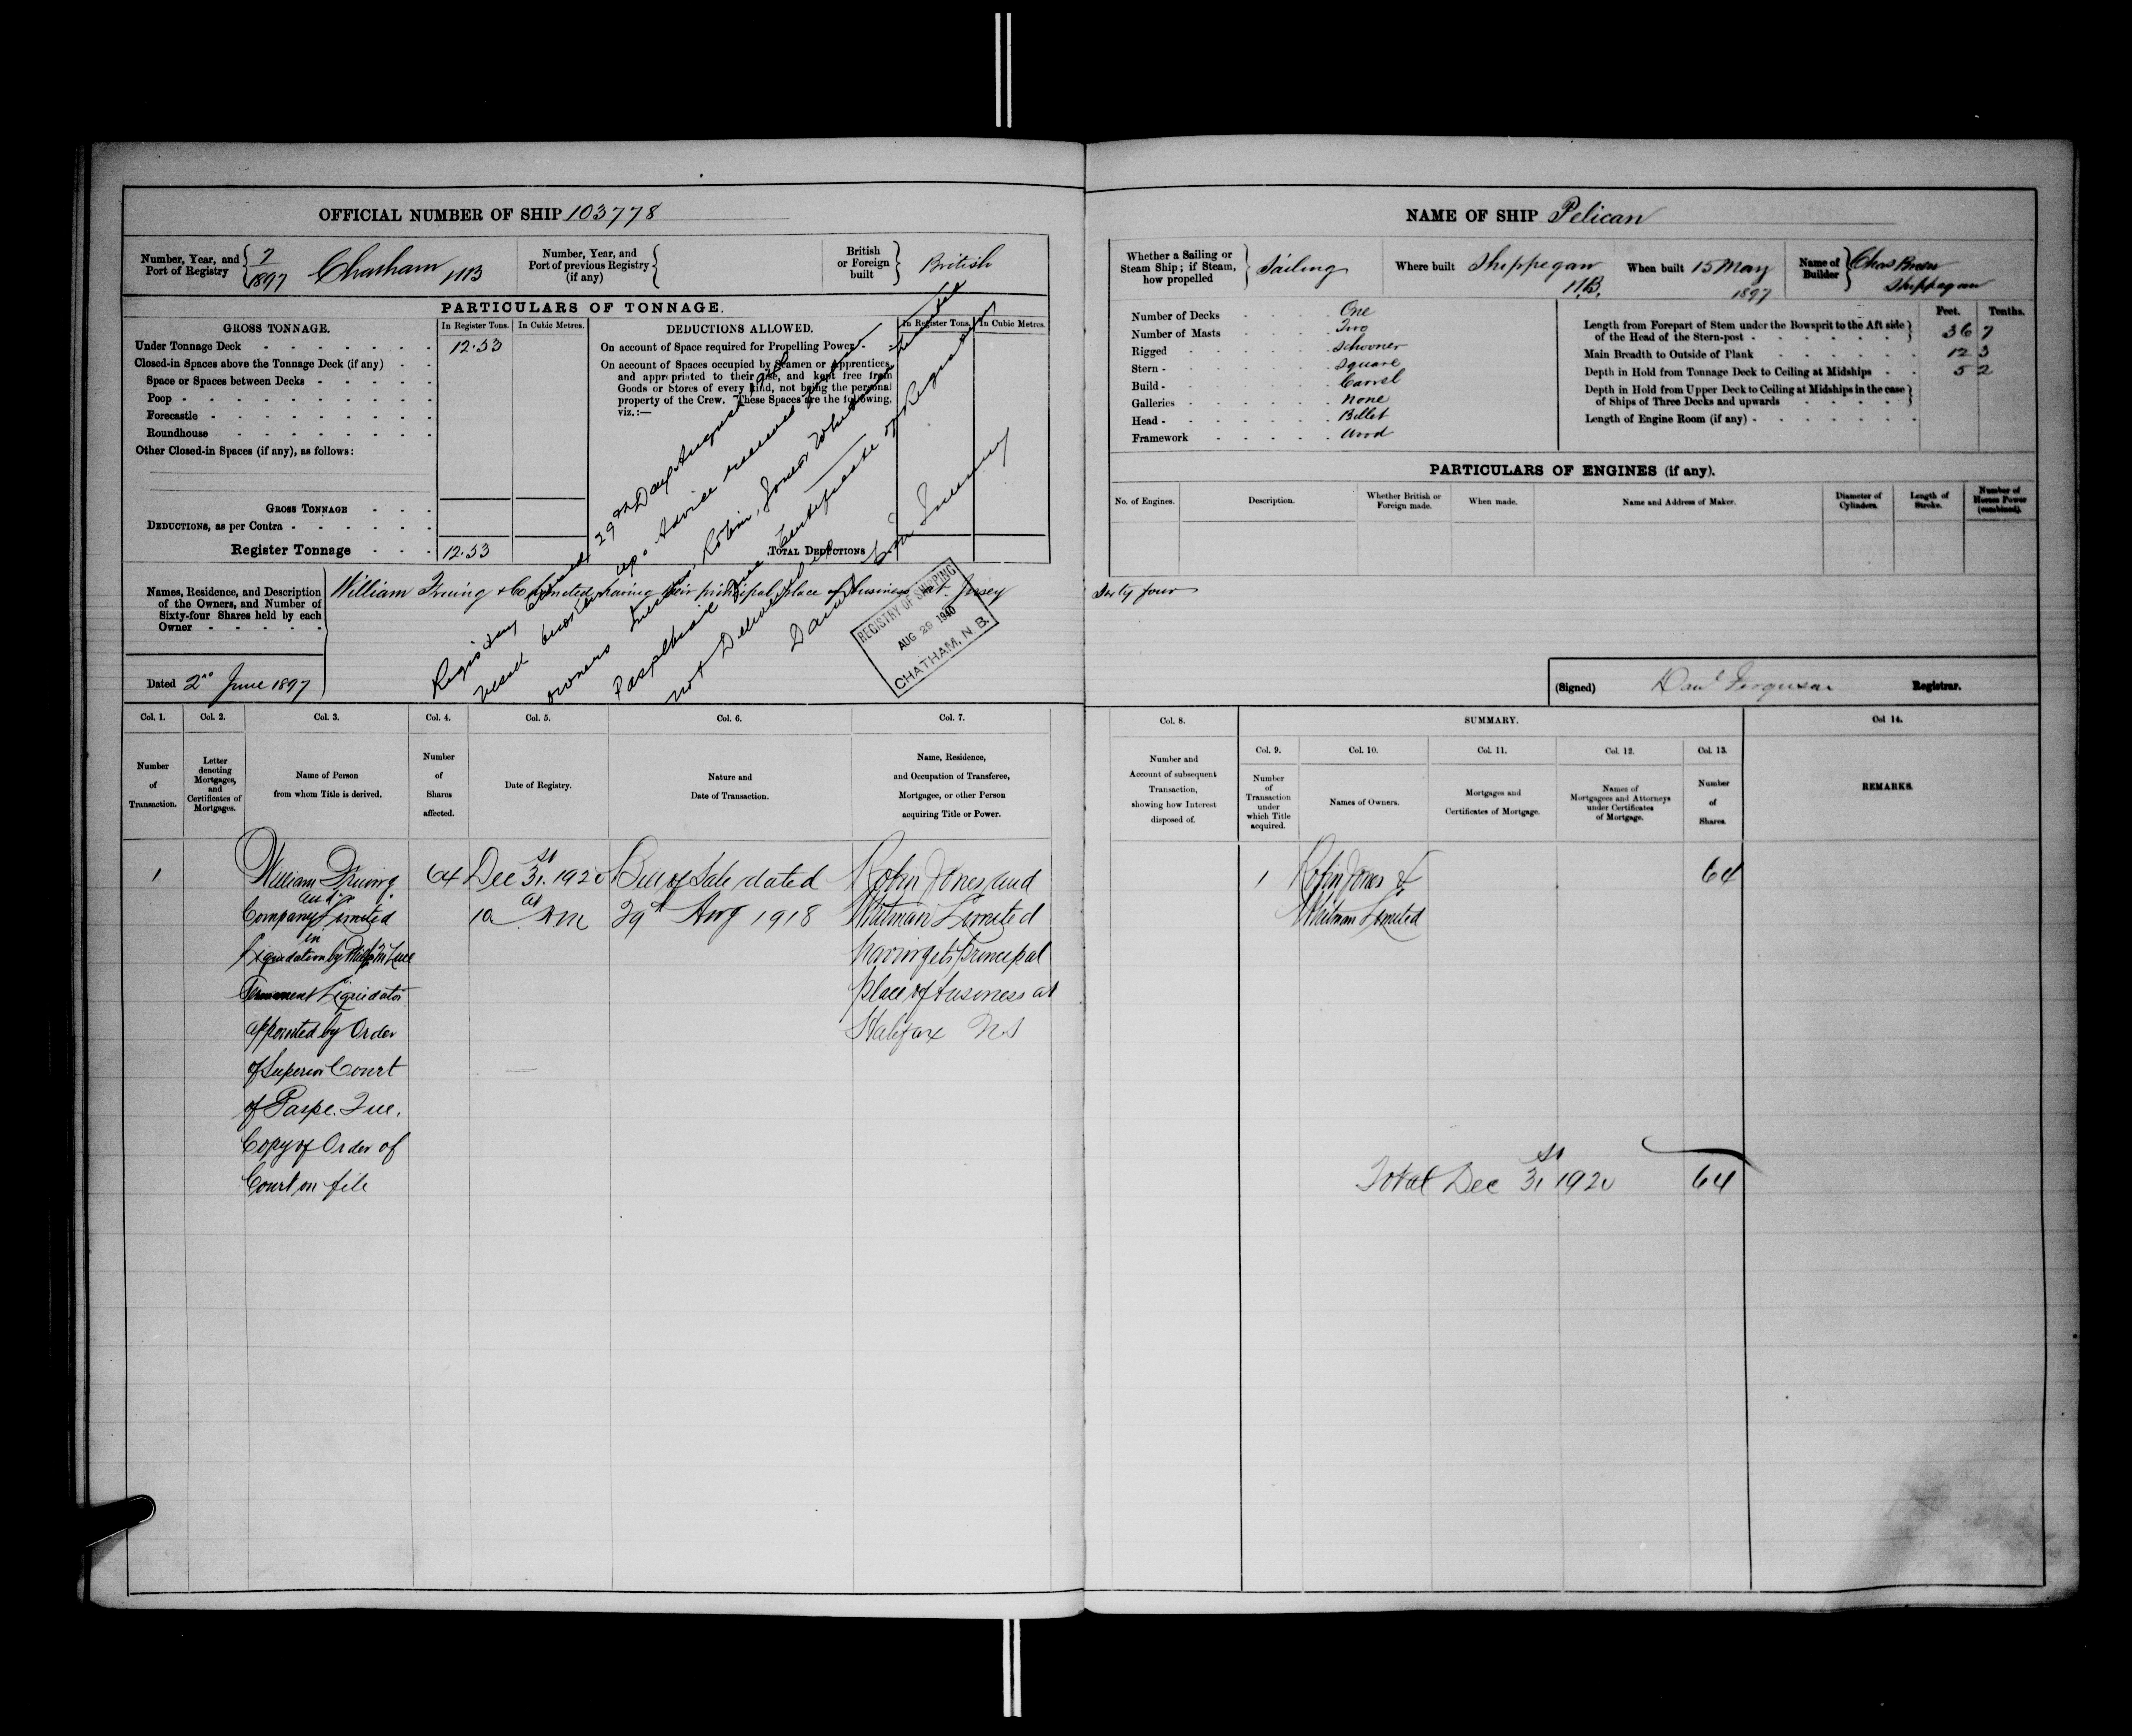 OFFICIAL NUMBER OF SHIP 103778
Number, Year, and Port of Registry
7
1897
Chatham NB
Number, Year, and Port of previous Registry (if any)
British or Foreign built
British
PARTICULARS OF TONNAGE.
GROSS TONNAGE.
In Register Tons.
In Cubic Metres.
DEDUCTIONS ALLOWED.
In Register Tons.
In Cubic Metres.
Under Tonnage Deck 12.53
Closed-in Spaces above the Tonnage Deck (if any)
Space or Spaces between Decks
Poop
Forecastle
Roundhouse
Other Closed-in Spaces (if any), as follows:
GROSS TONNAGE
DEDUCTIONS, as per Contra
Register Tonnage 12.53
On account of Space required for Propelling Power
On account of Spaces occupied by Seamen or Apprentices,
and appropriated to their use, and kept free from
Goods or Stores of every kind, not being the personal
property of the Crew. These Spaces are the following,
viz.:—
TOTAL DEDUCTIONS
Registry Closed 29th Day August 1940
vessel broken up. Advice received from
owners Messrs. Robin, Jones & Whitman Limited
Paspebiac Que Certificate of Registry
not Delivered up
REGISTRY OF SHIPPING
AUG 29 1940
CHATHAM, N.B.
Names, Residence, and Description
of the Owners, and Number of
Sixty-four Shares held by each
Owner
William Fruing & Co Limited having their principal place of business at Jersey
Sixty four
Dated 2nd June 1897
Col. 1.
Col. 2.
Col. 3.
Col. 4.
Col. 5.
Col. 6.
Col. 7.
Number of Transaction.
Letter denoting Mortgages, and Certificates of Mortgages.
Name of Person from whom Title is derived.
Number of Shares affected.
Date of Registry.
Nature and Date of Transaction.
Name, Residence, and Occupation of Transferee, Mortgagee, or other Person acquiring Title or Power.
1
William Fruing
and
Company Limited
in
Liquidation by
Permanent Liquidator
appointed by Order
of Superior Court
of Gaspe. Que.
Copy of Order of
Court on file
64
Dec 31st. 1920
at
10 AM
Bill of Sale dated
29th Aug 1918
Robin Jones and
Whitman Limited
having its principal
place of business at
Halifax N.S
NAME OF SHIP Pelican
Whether a Sailing or Steam Ship; if Steam, how propelled
Sailing
Where built Shippegan
N.B.
When built 15 May
1897
Name of Builder
Chas
Shippegan
Number of Decks One
Number of Masts Two
Rigged Schooner
Stern Square
Build Carvel
Galleries None
Head Billet
Framework Wood
Feet. Tenths.
Length from Forepart of Stem under the Bowsprit to the Aft side
of the Head of the Stern-post 36 7
Main Breadth to Outside of Plank 12 3
Depth in Hold from Tonnage Deck to Ceiling at Midships 5 2
Depth in Hold from Upper Deck to Ceiling at Midships in the case
of Ships of Three Decks and upwards
Length of Engine Room (if any)
PARTICULARS OF ENGINES (if any).
No. of Engines.
Description.
Whether British or Foreign made.
When made.
Name and Address of Maker.
Diameter of Cylinders.
Length of Stroke.
Number of Horses Power (combined).
(Signed) Danl Ferguson Registrar.
Col. 8.
SUMMARY.
Col. 14.
Col. 9.
Col. 10.
Col. 11.
Col. 12.
Col. 13.
Number and Account of subsequent Transaction, showing how Interest disposed of.
Number of Transaction under which Title acquired.
Names of Owners.
Mortgages and Certificates of Mortgage.
Names of Mortgagees and Attorneys under Certificates of Mortgage.
Number of Shares.
REMARKS.
1
Robin Jones &
Whitman Limited
64
Total Dec 31st 1920 64